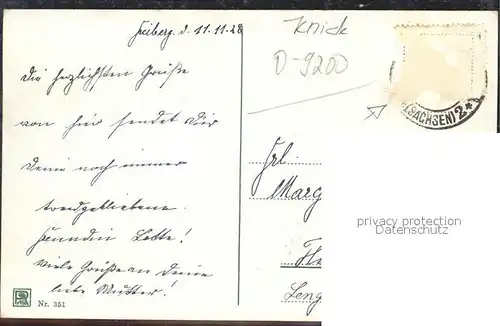 Freiberg d. 11.11.28
Die herzlichsten Grüße
von hier sendet Dir
Deine noch immer
treugebliebene
Freundin Lotte!
Viele Grüße an Deine
liebe Mutter!
Nr. 351
Knick
D-9200
(SACHSEN) 2
Frl.
Marg
Leng
privacy protection
Datenschutz